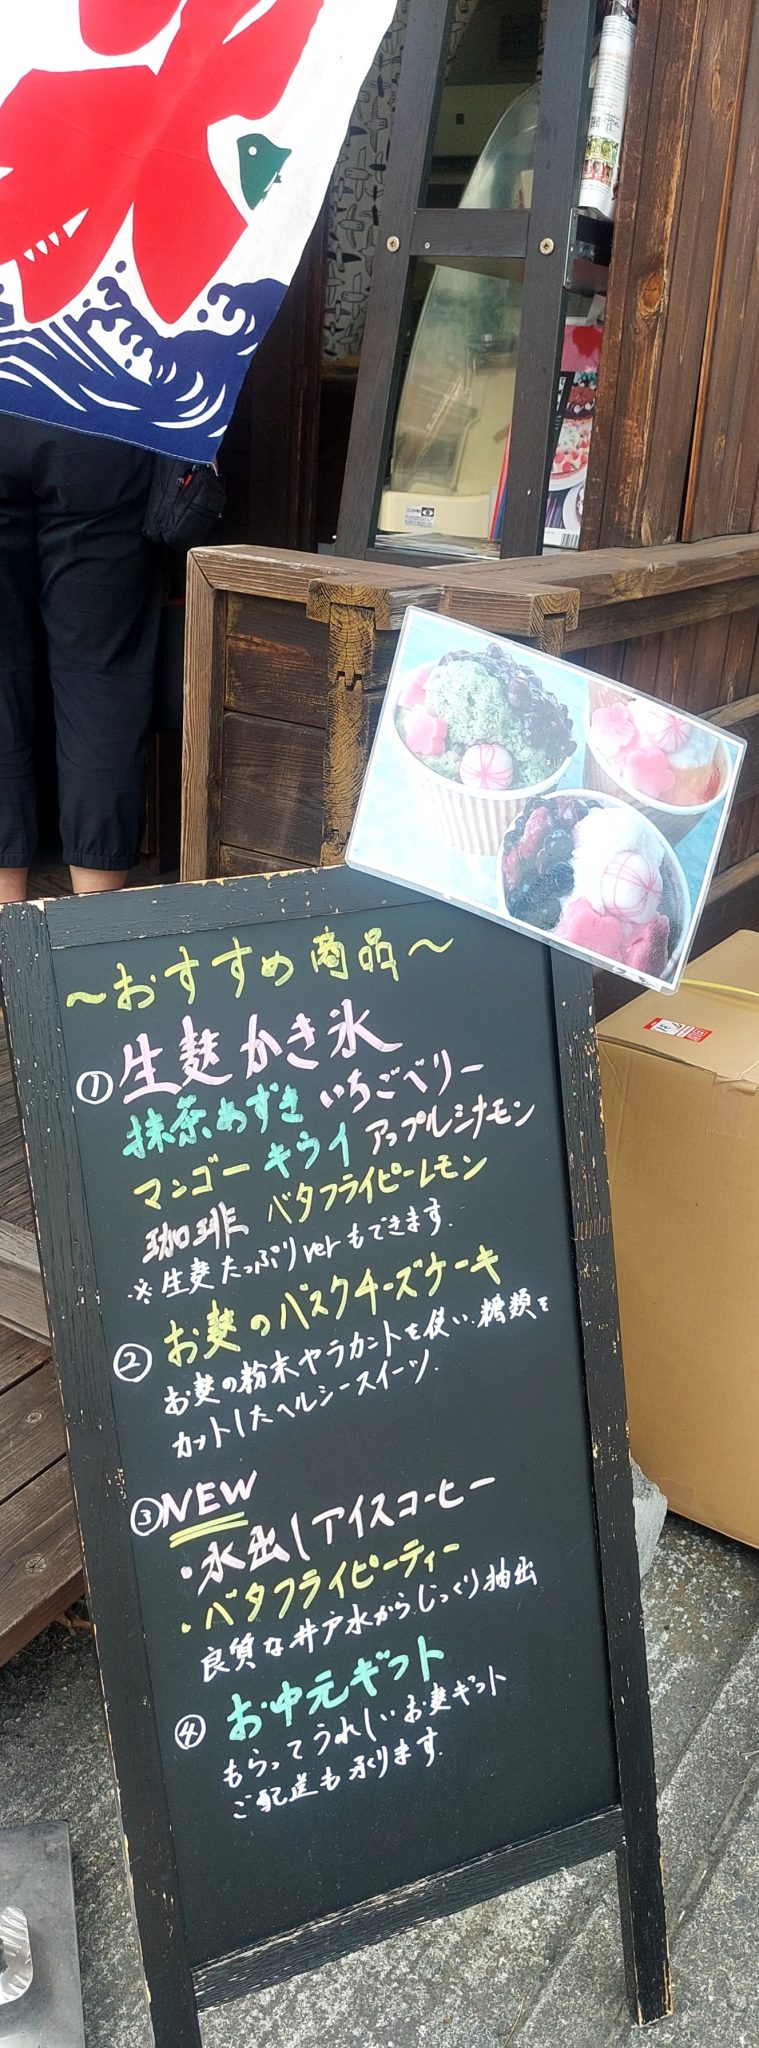 氷
～おすすめ商品～
①生麩かき氷
抹茶あずき いちごベリー
マンゴー キウイ アップルシナモン
珈琲 バタフライピーレモン
※生麩たっぷりverもできます.
②お麩のバスクチーズケーキ
お麩の粉末やラカントを使い、糖類を
カットしたヘルシースイーツ.
③NEW
・水出しアイスコーヒー
・バタフライピーティー
良質な井戸水からじっくり抽出
④お中元ギフト
もらってうれしいお麩ギフト
ご配送も承ります.